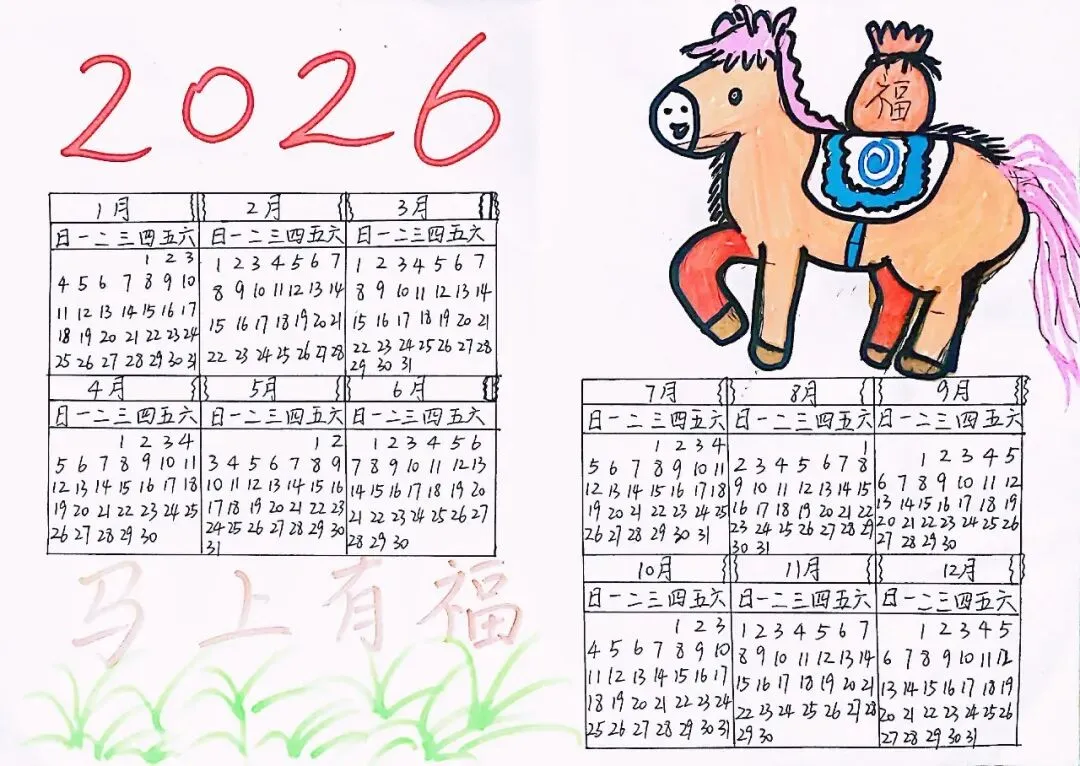 2026
福
1月
日一二三四五六
1 2 3
4 5 6 7 8 9 10
11 12 13 14 15 16 17
18 19 20 21 22 23 24
25 26 27 28 29 30 31
2月
日一二三四五六
1 2 3 4 5 6 7
8 9 10 11 12 13 14
15 16 17 18 19 20 21
22 23 24 25 26 27 28
3月
日一二三四五六
1 2 3 4 5 6 7
8 9 10 11 12 13 14
15 16 17 18 19 20 21
22 23 24 25 26 27 28
29 30 31
4月
日一二三四五六
1 2 3 4
5 6 7 8 9 10 11
12 13 14 15 16 17 18
19 20 21 22 23 24 25
26 27 28 29 30
5月
日一二三四五六
1 2
3 4 5 6 7 8 9
10 11 12 13 14 15 16
17 18 19 20 21 22 23
24 25 26 27 28 29 30
31
6月
日一二三四五六
1 2 3 4 5 6
7 8 9 10 11 12 13
14 15 16 17 18 19 20
21 22 23 24 25 26 27
28 29 30
马上有福
7月
日一二三四五六
1 2 3 4
5 6 7 8 9 10 11
12 13 14 15 16 17 18
19 20 21 22 23 24 25
26 27 28 29 30 31
8月
日一二三四五六
1
2 3 4 5 6 7 8
9 10 11 12 13 14 15
16 17 18 19 20 21 22
23 24 25 26 27 28 29
30 31
9月
日一二三四五六
1 2 3 4 5
6 7 8 9 10 11 12
13 14 15 16 17 18 19
20 21 22 23 24 25 26
27 28 29 30
10月
日一二三四五六
1 2 3
4 5 6 7 8 9 10
11 12 13 14 15 16 17
18 19 20 21 22 23 24
25 26 27 28 29 30 31
11月
日一二三四五六
1 2 3 4 5 6 7
8 9 10 11 12 13 14
15 16 17 18 19 20 21
22 23 24 25 26 27 28
29 30
12月
日一二三四五六
1 2 3 4 5
6 7 8 9 10 11 12
13 14 15 16 17 18 19
20 21 22 23 24 25 26
27 28 29 30 31